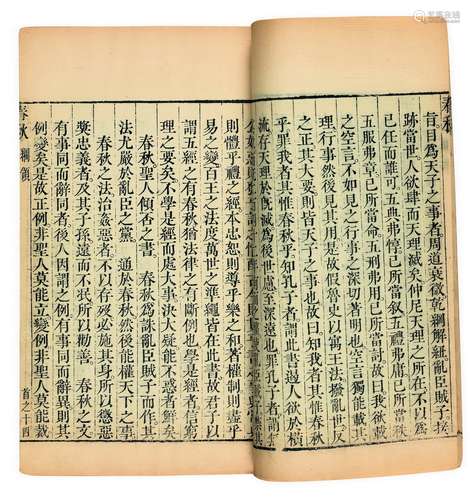 春秋
旨目爲天子之事者周道衰微乾綱解紐亂臣賊子接
跡當世人欲肆而天理滅矣仲尼天理之所在不以爲
己任而誰可五典弗惇己所當敘五禮弗庸己所當秩
五服弗章己所當命五刑弗用己所當討故曰我欲載
之空言不如見之行事之深切著明也空言獨能載其
理行事然後見其用是故假魯史以寓王法撥亂世反
之正其大要則皆天子之事也故曰知我者其惟春秋
乎罪我者其惟春秋乎知孔子者謂此書遏人欲於橫
流存天理於旣滅爲後世慮至深遠也罪孔子者謂
則體乎禮之經本忠恕則導乎樂之和著權制則盡乎
易之變百王之法度萬世之準繩皆在此書故君子以
謂五經之有春秋猶法律之有斷例也學是經者信窮
理之要矣不學是經而處大事決大疑能不惑者鮮矣
春秋聖人傾否之書 春秋爲誅亂臣賊子而作其
法尤嚴於亂臣之黨 通於春秋然後能權天下之事
春秋之法治姦惡者不以存歿必施其身所以懲惡
奬忠義者及其子孫遠而不泯所以勸善 春秋之文
有事同而辭同者後人因謂之例有事同而辭異則其
例變矣是故正例非聖人莫能立變例非聖人莫能裁
春秋 綱領 首之十四